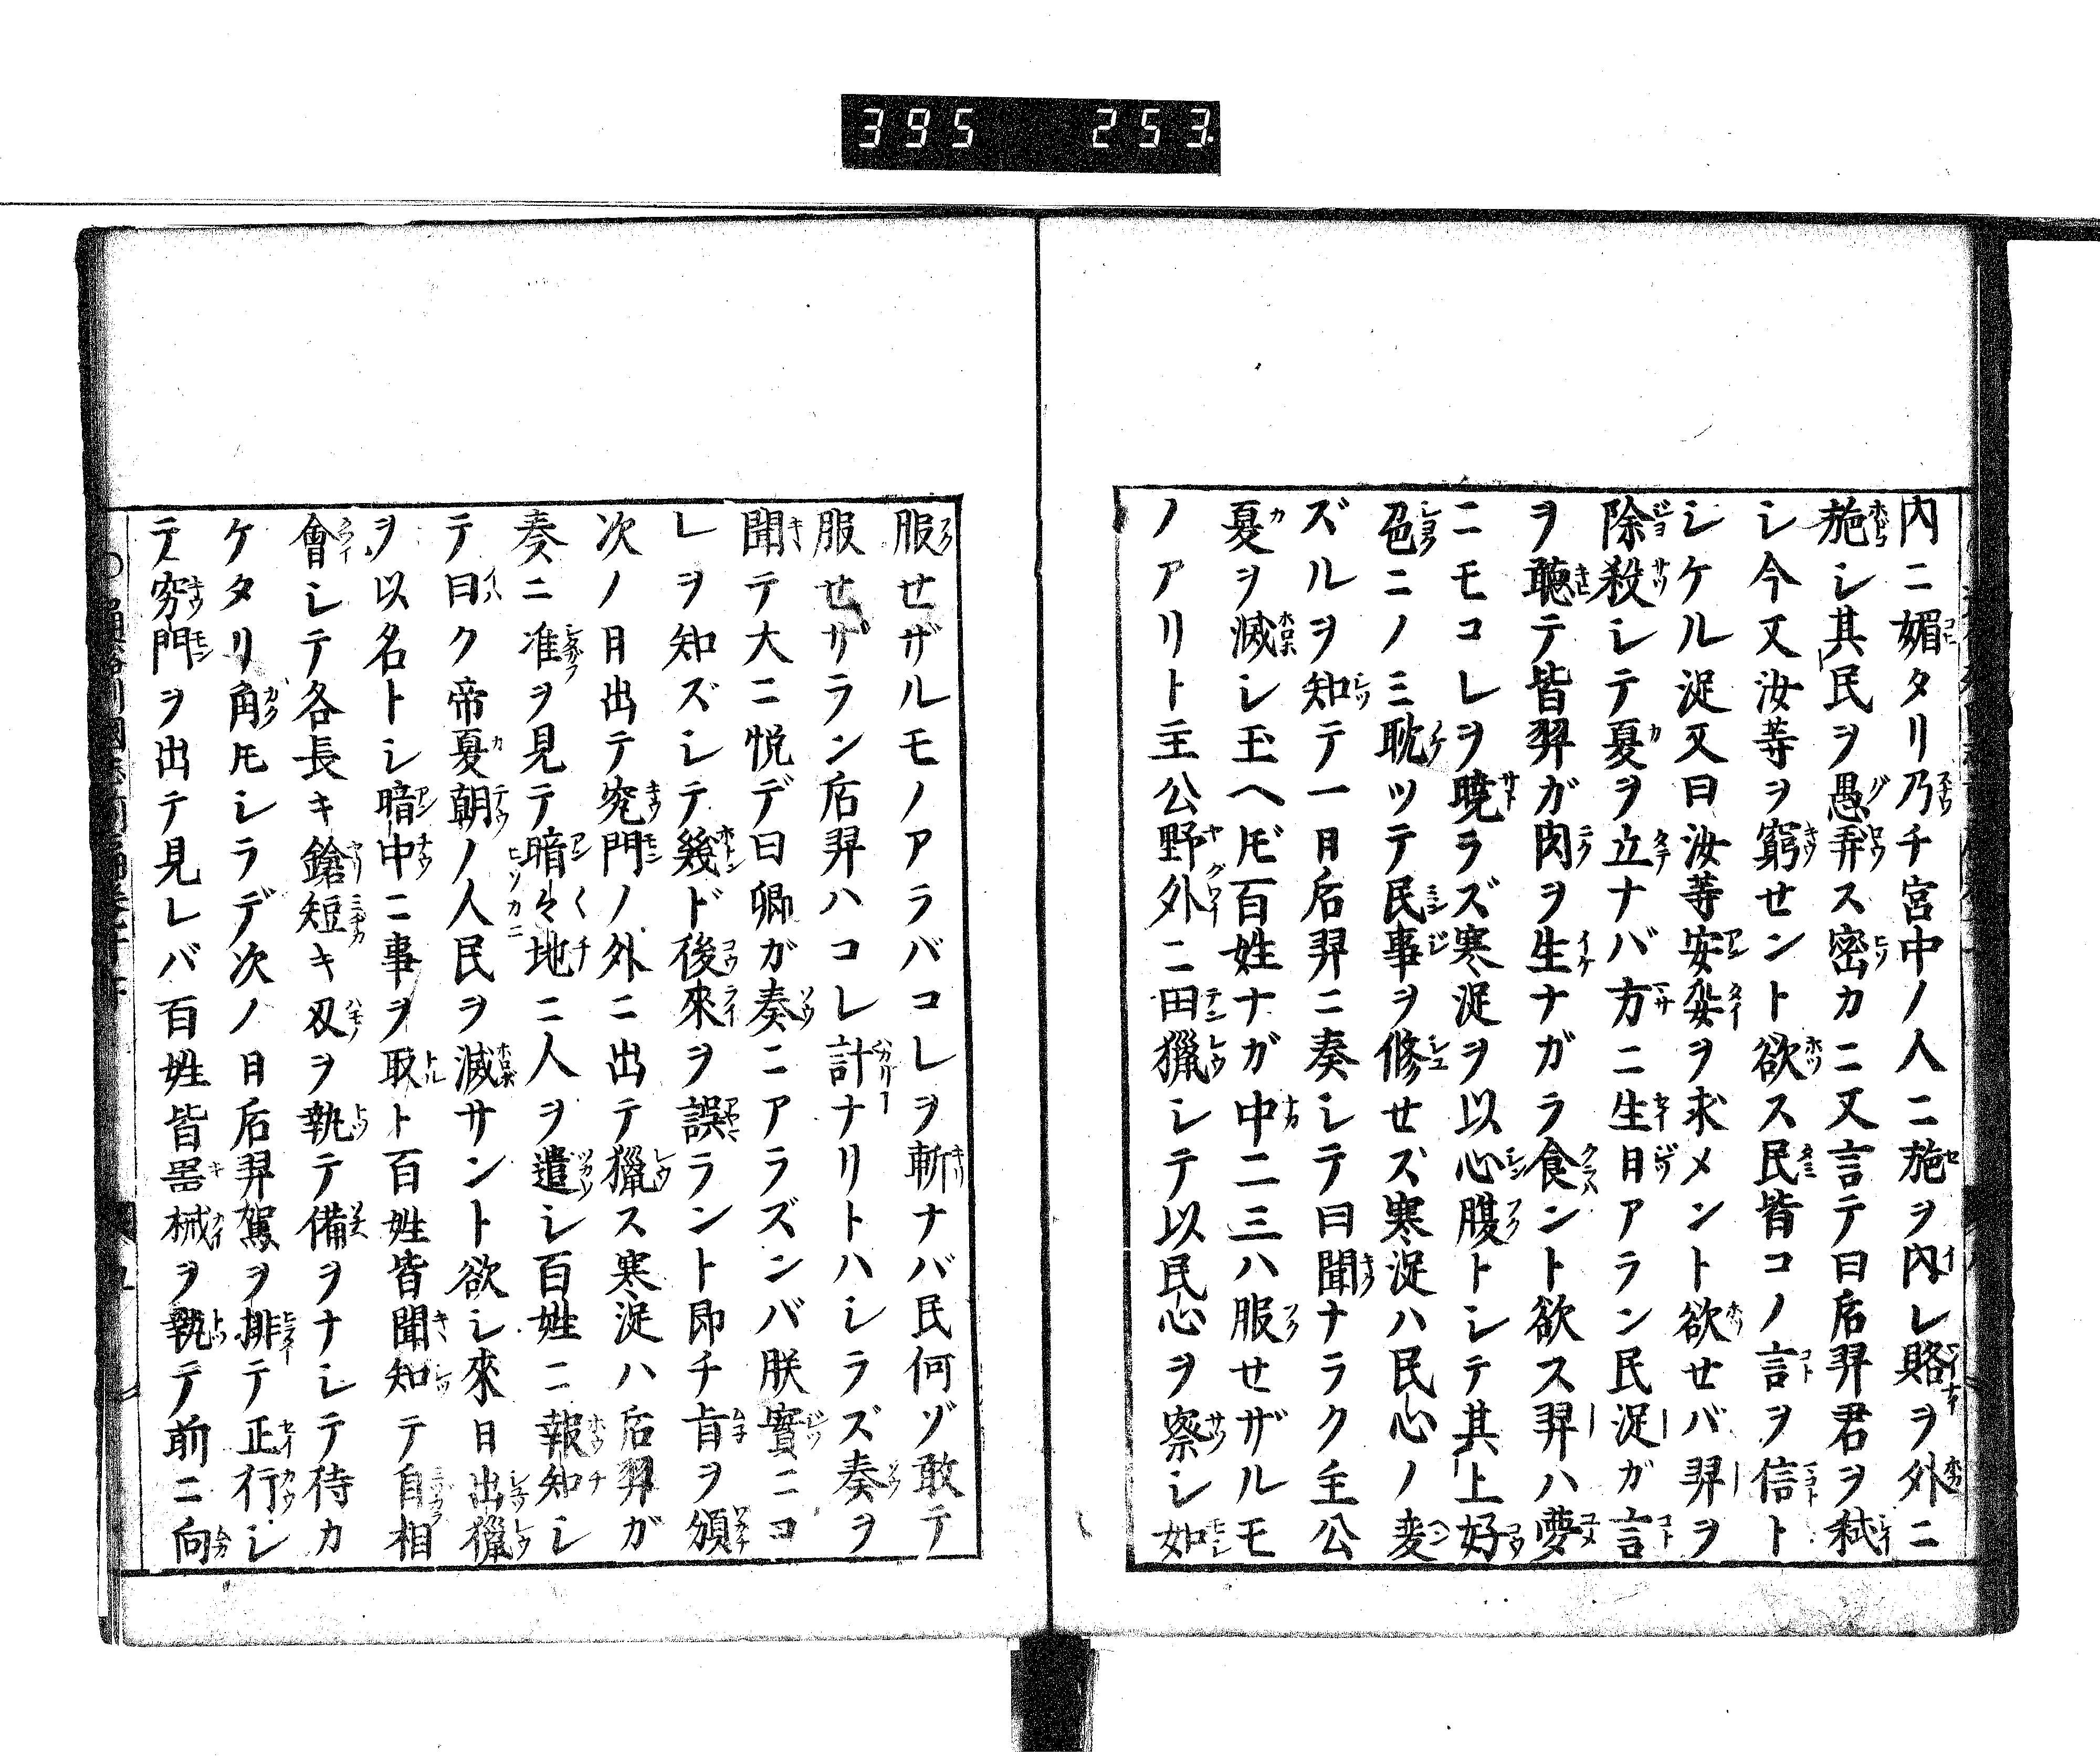 395 253
内ニ媚タリ乃チ宮中ノ人ニ施ヲ内レ賂ヲ外ニ
施シ其民ヲ愚弄ス密カニ又言テ曰后羿君ヲ弑
シ今又汝等ヲ窮セント欲ス民皆コノ言ヲ信ト
シケル浞又曰汝等安㚣ヲ求メント欲セバ羿ヲ
除殺シテ夏ヲ立ナバ方ニ生日アラン民浞ガ言
ヲ聴テ皆羿ガ肉ヲ生ナガラ食ント欲ス羿ハ夢
ニモコレヲ曉ラズ寒浞ヲ以心腹トシテ其上好
色ニノミ耽ツテ民事ヲ修セズ寒浞ハ民心ノ変
ズルヲ知テ一日后羿ニ奏シテ曰聞ナラク主公
夏ヲ滅シ玉ヘ𪜈百姓ナガ中二三ハ服セザルモ
ノアリト主公野外ニ田獵シテ以民心ヲ察シ如
服セザルモノアラバコレヲ斬ナバ民何ゾ敢テ
服セザラン后羿ハコレ計ナリトハシラズ奏ヲ
聞テ大ニ悦デ曰卿ガ奏ニアラズンバ朕實ニコ
レヲ知ズシテ幾ド後來ヲ誤ラント即チ旨ヲ頒
次ノ日出テ窮門ノ外ニ出テ獵ス寒浞ハ后羿ガ
奏ニ准ヲ見テ暗々地ニ人ヲ遣シ百姓ニ報知シ
テ曰ク帝夏朝ノ人民ヲ滅サント欲シ來日出獵
ヲ以名トシ暗中ニ事ヲ取ト百姓皆聞知テ自相
會シテ各長キ鎗短キ刄ヲ執テ備ヲナシテ待カ
ケタリ角𪜈シラデ次ノ日后羿駕ヲ排テ正行シ
テ窮門ヲ出テ見レバ百姓皆噐械ヲ執テ前ニ向